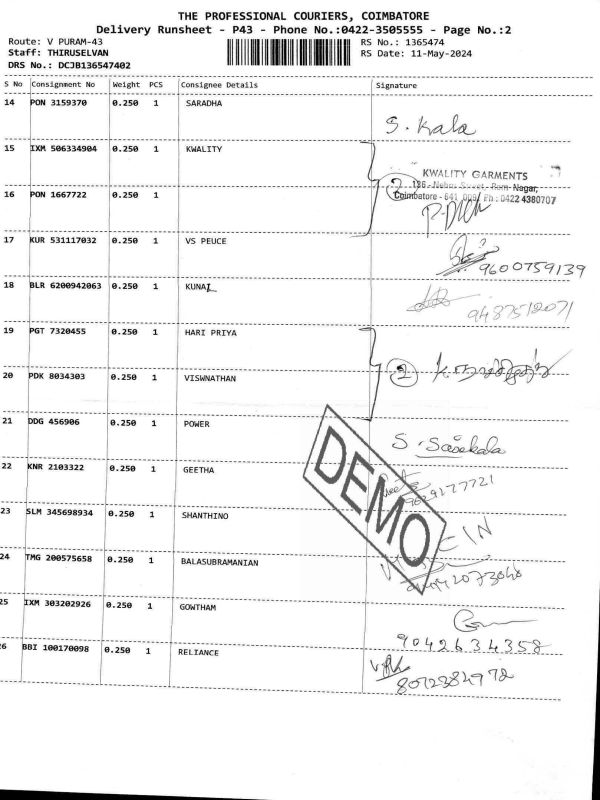 THE PROFESSIONAL COURIERS, COIMBATORE
Delivery Runsheet - P43 - Phone No.:0422-3505555 - Page No.:2
Route: V PURAM-43 RS No.: 1365474
Staff: THIRUSELVAN RS Date: 11-May-2024
DRS No.: DCJB136547402
S No Consignment No Weight PCS Consignee Details Signature
14 PON 3159370 0.250 1 SARADHA S. Kala
15 IXM 506334904 0.250 1 KWALITY
KWALITY GARMENTS
Ram Nagar,
16 PON 1667722 0.250 1 2 Coimbatore - 641 009. Ph : 0422 4380707
17 KUR 531117032 0.250 1 VS PEUCE 9600759139
18 BLR 6200942063 0.250 1 KUNAL 9487512071
19 PGT 7320455 0.250 1 HARI PRIYA
20 PDK 8034303 0.250 1 VISWNATHAN 2
21 DDG 456906 0.250 1 POWER S. Sasekala
22 KNR 2103322 0.250 1 GEETHA 9629177721
DEMO
23 SLM 345698934 0.250 1 SHANTHINO
24 TMG 200575658 0.250 1 BALASUBRAMANIAN
25 IXM 303202926 0.250 1 GOWTHAM 9042634358
26 BBI 100170098 0.250 1 RELIANCE 8072384972